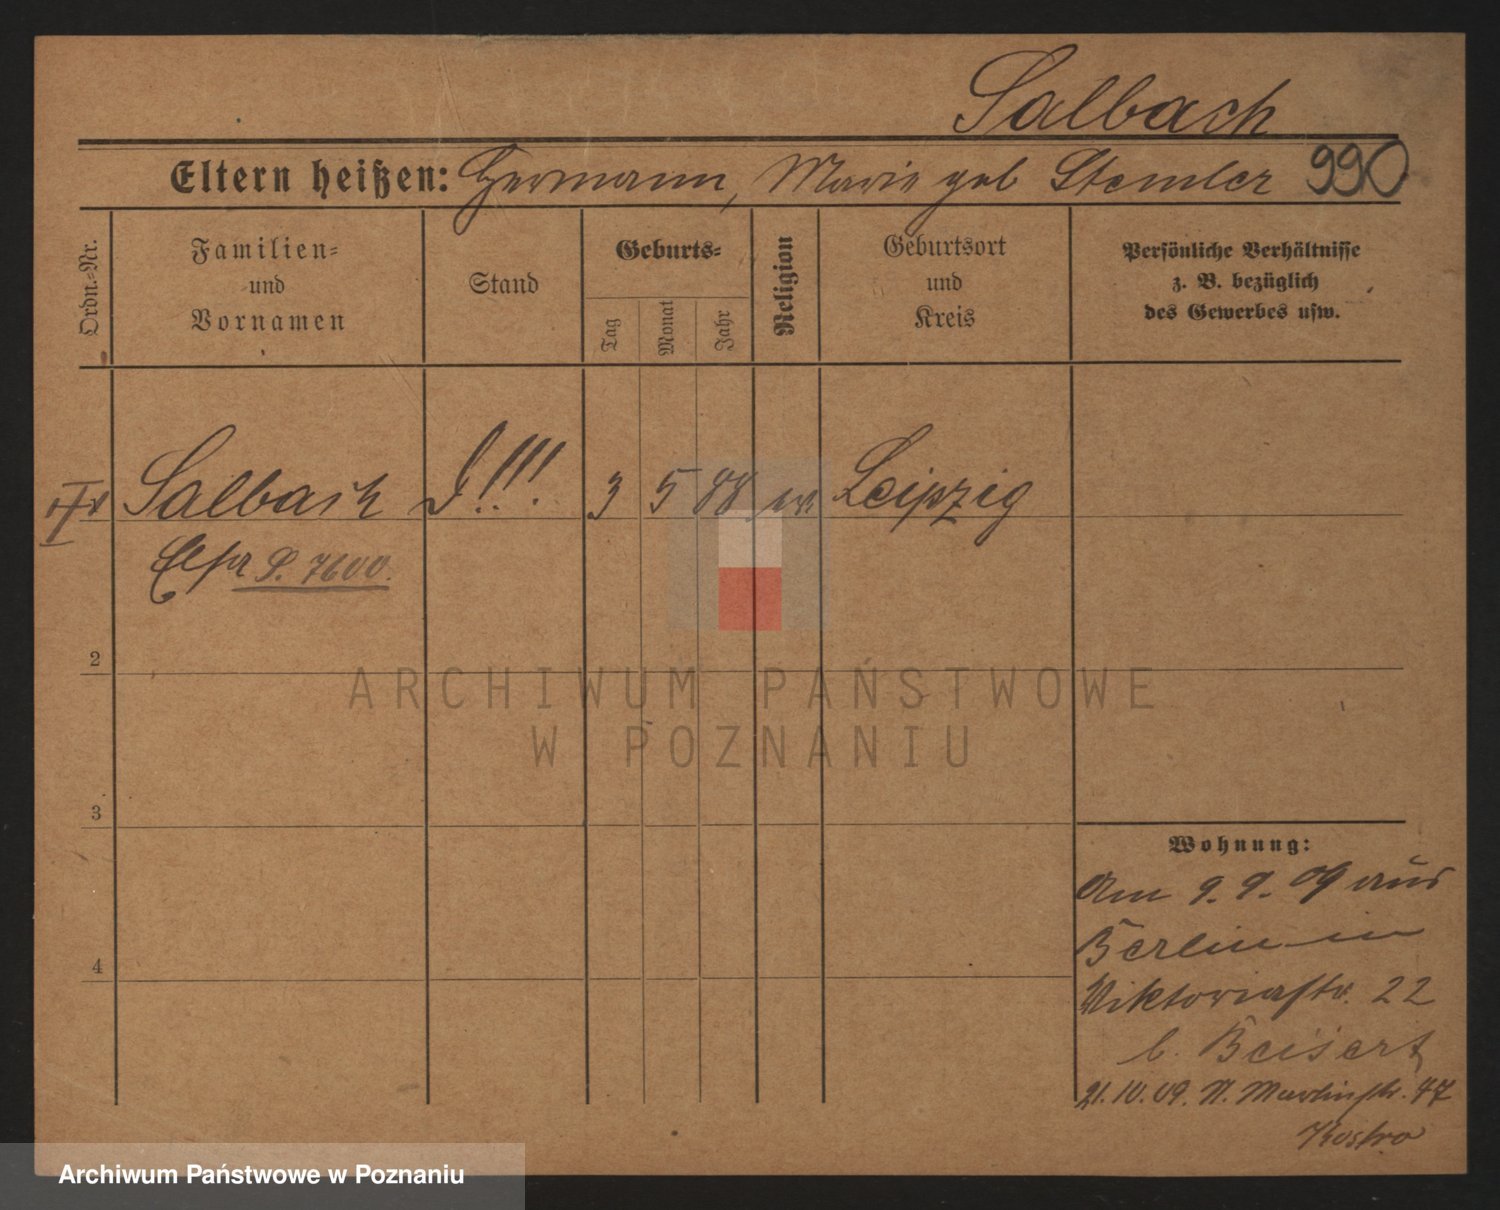 Salbach
Eltern heißen: Hermann, Marie geb Stemler 990
Ordn.-Nr.
Familien-
und
Vornamen
Stand
Geburts-
Tag
Monat
Jahr
Religion
Geburtsort
und
Kreis
Persönliche Verhältnisse
z. B. bezüglich
des Gewerbes usw.
Salbach 3 5 88 ev. Leipzig
P. 7600.
2
3
4
ARCHIWUM PAŃSTWOWE
W POZNANIU
Wohnung:
Am 9. 9. 09 aus
Berlin in
Viktoriastr. 22
b. Beisert
21.10.09. St. Martinstr. 47
Kostro
Archiwum Państwowe w Poznaniu